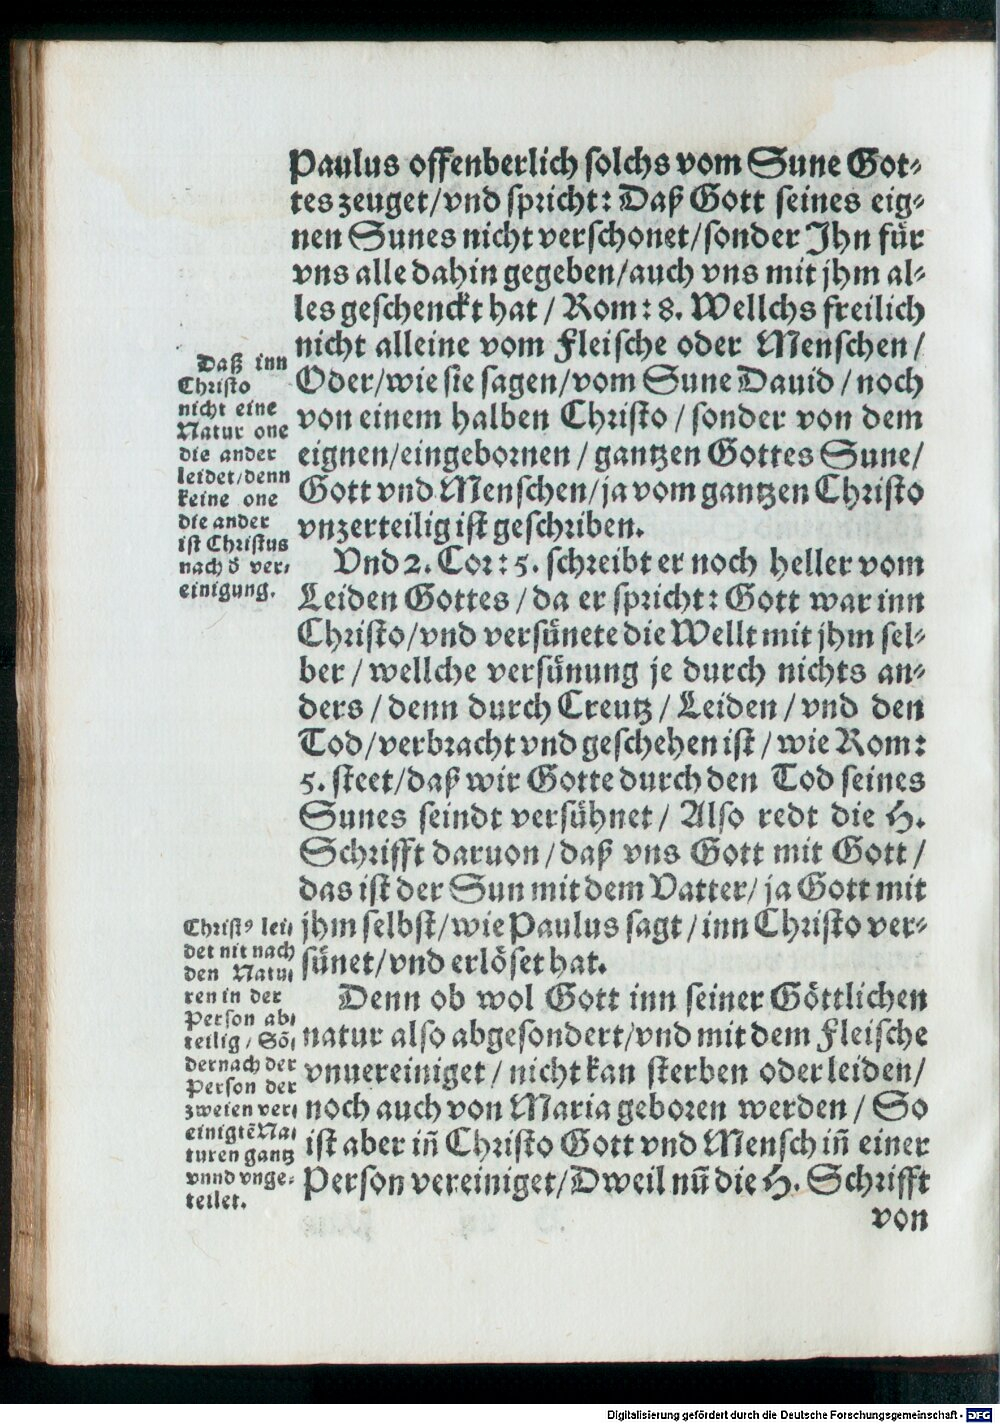 Paulus offenberlich solchs vom Sune Got⸗
tes zeuget/vnd spricht: Daß Gott seines eig⸗
nen Sunes nicht verschonet/sonder Ihn für
vns alle dahin gegeben/auch vns mit jhm al⸗
les geschenckt hat / Rom: 8. Wellchs freilich
nicht alleine vom Fleische oder Menschen /
Oder/wie sie sagen/vom Sune Dauid / noch
von einem halben Christo / sonder von dem
eignen/eingebornen / gantzen Gottes Sune/
Gott vnd Menschen/ja vom gantzen Christo
vnzerteilig ist geschriben.
Daß inn
Christo
nicht eine
Natur one
die ander
leidet/denn
keine one
die ander
ist Christus
nach d̕ ver⸗
einigung.
Vnd 2. Cor: 5. schreibt er noch heller vom
Leiden Gottes / da er spricht: Gott war inn
Christo/vnd versünete die Wellt mit jhm sel⸗
ber / wellche versünung je durch nichts an⸗
ders / denn durch Creutz / Leiden / vnd den
Tod/verbracht vnd geschehen ist / wie Rom:
5. steet/daß wir Gotte durch den Tod seines
Sunes seindt versühnet / Also redt die H.
Schrifft daruon / daß vns Gott mit Gott /
das ist der Sun mit dem Vatter/ ja Gott mit
jhm selbst/wie Paulus sagt / inn Christo ver⸗
sünet/vnd erlöset hat.
Christꝰ lei⸗
det nit nach
den Natu⸗
ren in der
Person ab⸗
teilig / Sõ⸗
dernach der
Person der
zweien ver⸗
einigtẽ Na⸗
turen gantz
vnnd vnge⸗
teilet.
Denn ob wol Gott inn seiner Göttlichen
natur also abgesondert/vnd mit dem Fleische
vnuereiniget / nicht kan sterben oder leiden/
noch auch von Maria geboren werden / So
ist aber iñ Christo Gott vnd Mensch iñ einer
Person vereiniget/Dweil nũ die H. Schrifft
von
Digitalisierung gefördert durch die Deutsche Forschungsgemeinschaft - DFG